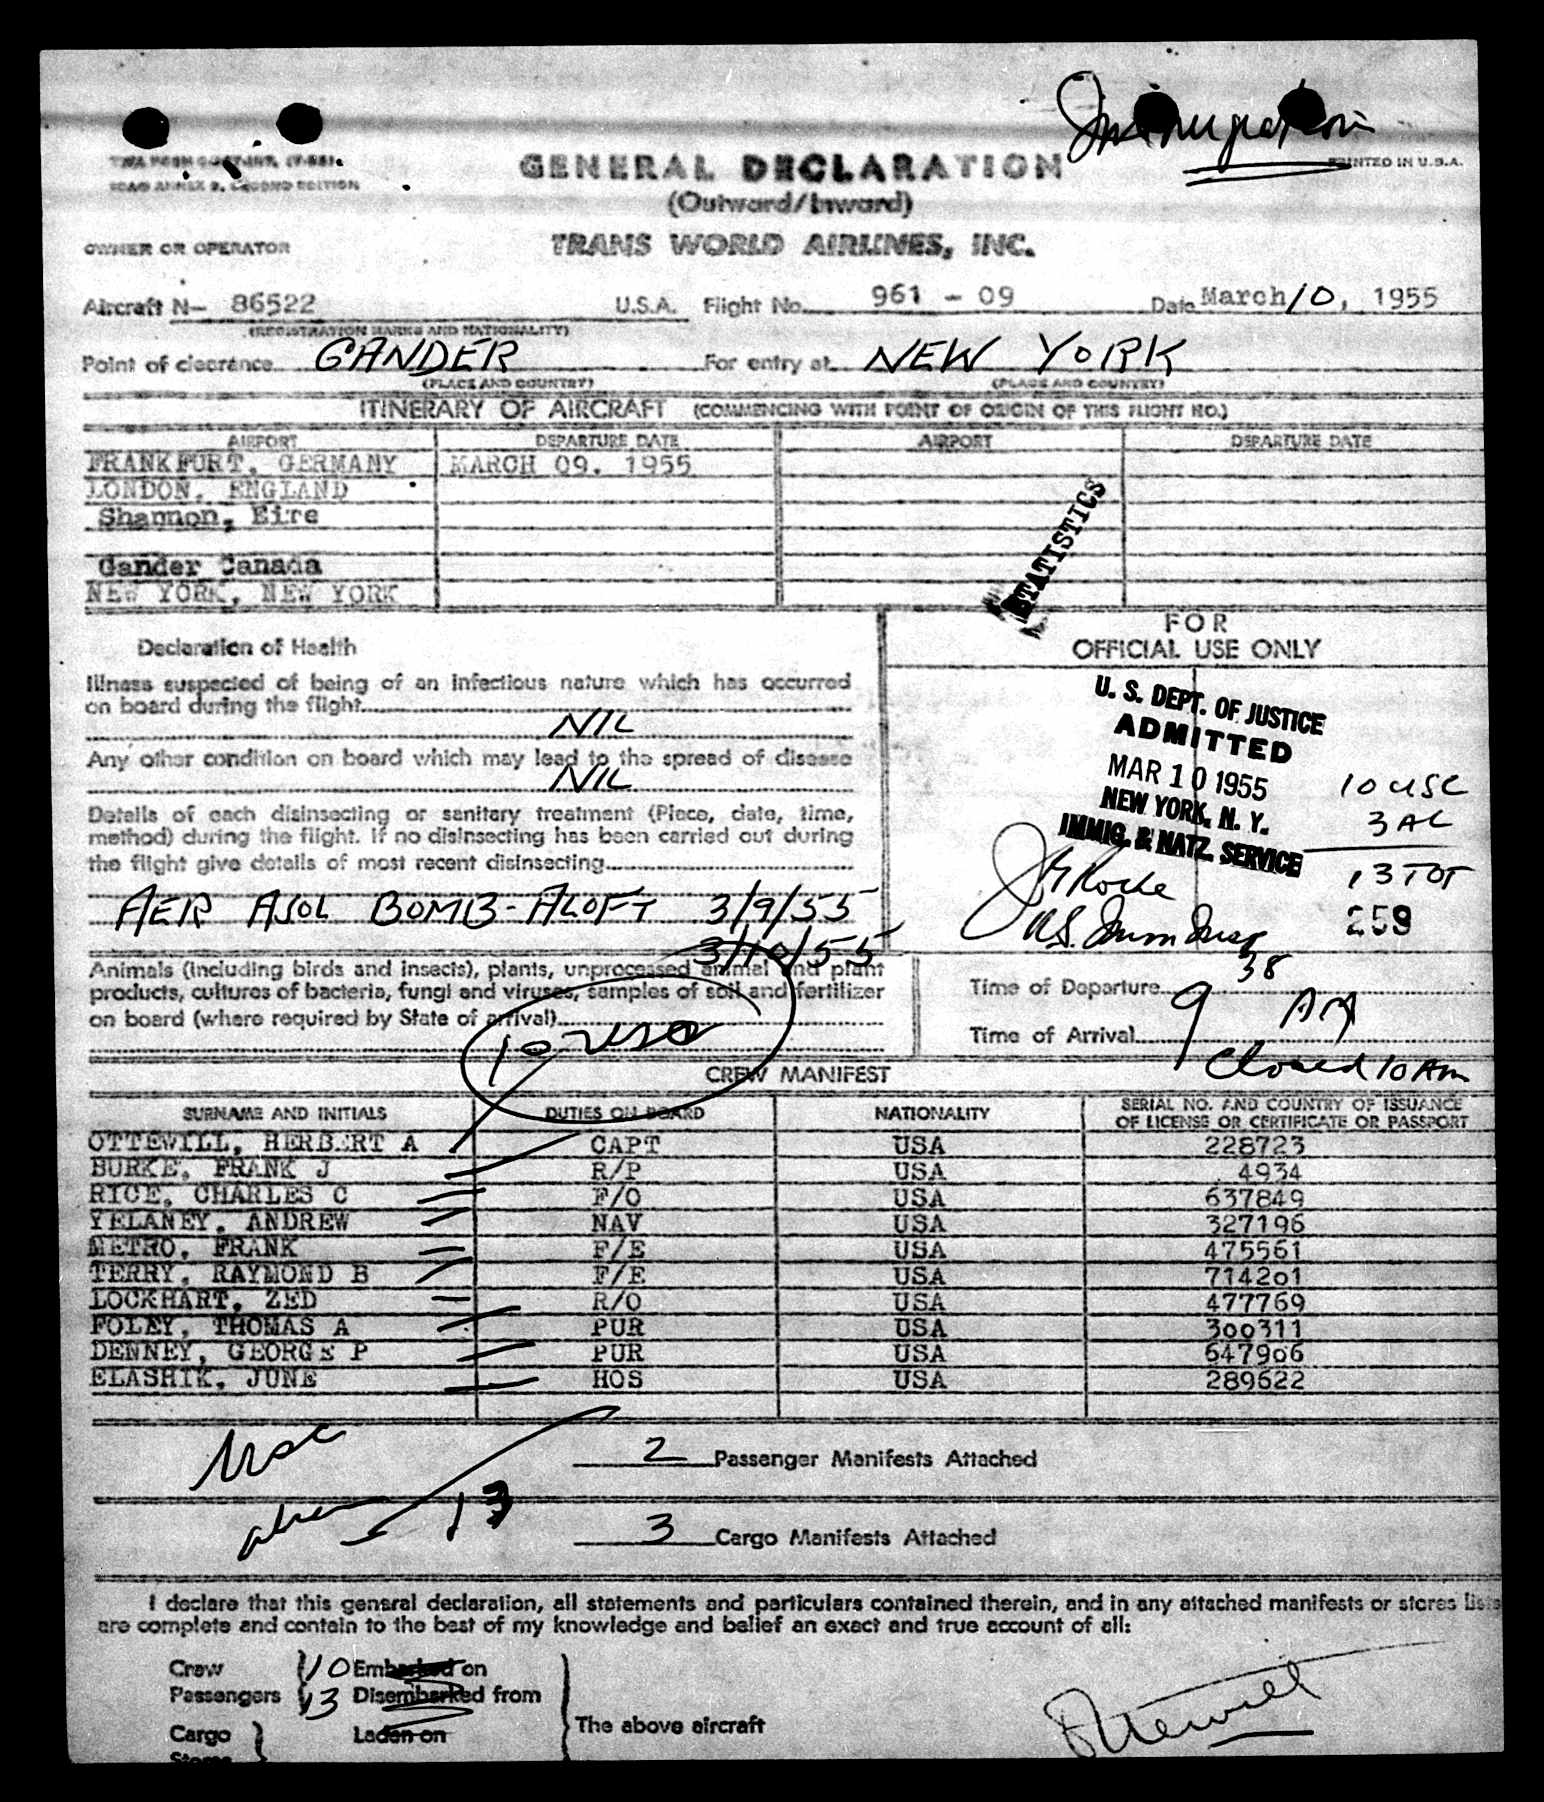 Immigration
PRINTED IN U.S.A.
ICAO ANNEX 9, SECOND EDITION
GENERAL DECLARATION
(Outward/Inward)
OWNER OR OPERATOR TRANS WORLD AIRLINES, INC.
Aircraft N- 86522 U.S.A. Flight No. 961 - 09 Date March 10, 1955
(REGISTRATION MARKS AND NATIONALITY)
Point of clearance GANDER For entry at NEW YORK
(PLACE AND COUNTRY) (PLACE AND COUNTRY)
ITINERARY OF AIRCRAFT (COMMENCING WITH POINT OF ORIGIN OF THIS FLIGHT NO.)
AIRPORT DEPARTURE DATE AIRPORT DEPARTURE DATE
FRANKFURT, GERMANY MARCH 09. 1955
LONDON, ENGLAND
Shannon, Eire
Gander Canada
NEW YORK, NEW YORK
STATISTICS
FOR
OFFICIAL USE ONLY
Declaration of Health
Illness suspected of being of an infectious nature which has occurred
on board during the flight
NIL
Any other condition on board which may lead to the spread of disease
NIL
Details of each disinsecting or sanitary treatment (Place, date, time,
method) during the flight. If no disinsecting has been carried out during
the flight give details of most recent disinsecting
AER ASOL BOMB-ALOFT 3/9/55
3/10/55
U. S. DEPT. OF JUSTICE
ADMITTED
MAR 10 1955
NEW YORK, N. Y.
IMMIG. & NATZ. SERVICE
10 USC
3 AL
13 TOT
259
Roche
U.S. Imm Insp
Animals (including birds and insects), plants, unprocessed animal and plant
products, cultures of bacteria, fungi and viruses, samples of soil and fertilizer
on board (where required by State of arrival)
10 USA
Time of Departure
Time of Arrival 9 38 AM
Closed 10 AM
CREW MANIFEST
SURNAME AND INITIALS DUTIES ON BOARD NATIONALITY SERIAL NO. AND COUNTRY OF ISSUANCE
OF LICENSE OR CERTIFICATE OR PASSPORT
OTTEWILL, HERBERT A CAPT USA 228723
BURKE, FRANK J R/P USA 4934
RICE, CHARLES C F/O USA 637849
YELANEY, ANDREW NAV USA 327196
METRO, FRANK F/E USA 475561
TERRY, RAYMOND B F/E USA 714201
LOCKHART, ZED R/O USA 477769
FOLEY, THOMAS A PUR USA 300311
DENNEY, GEORGE P PUR USA 647906
ELASHIK, JUNE HOS USA 289622
USC
2 Passenger Manifests Attached
alien 13
3 Cargo Manifests Attached
I declare that this general declaration, all statements and particulars contained therein, and in any attached manifests or stores lists
are complete and contain to the best of my knowledge and belief an exact and true account of all:
Crew 10 Embarked on
Passengers 13 Disembarked from
Cargo Laden on
The above aircraft
Stores
Ottewill